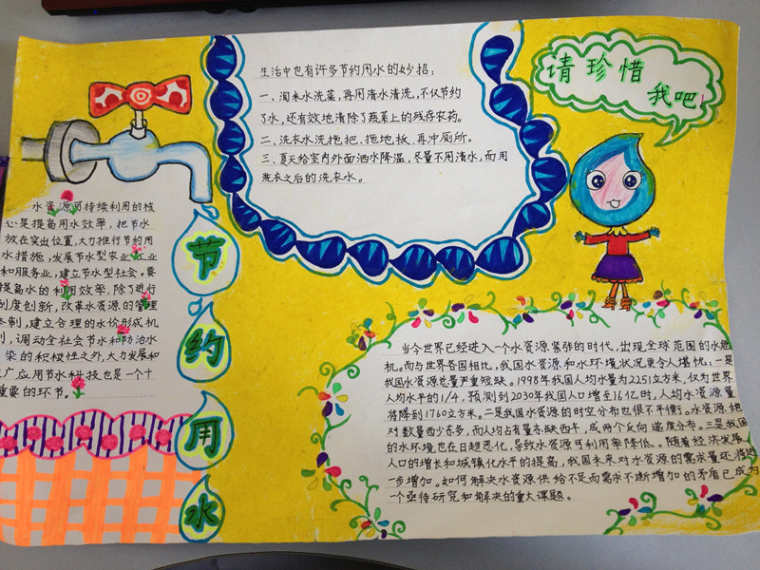 生活中也有许多节约用水的妙招:
一、淘米水洗菜,再用清水清洗,不仅节约
了水,还有效地清除了蔬菜上的残存农药。
二、洗衣水洗拖把、拖地板、再冲厕所。
三、夏天给室内外面洒水降温,尽量不用清水,而用
洗衣之后的洗衣水。
请珍惜
我吧!
水资源可持续利用的核
心是提高用水效率,把节水
放在突出位置,大力推行节约用
水措施,发展节水型农业、工业
和服务业,建立节水型社会。要
提高水的利用效率,除了进行
制度创新,改革水资源的管理
体制,建立合理的水价形成机
制,调动全社会节水和防治水
染的积极性之外,大力发展和
广应用节水科技也是一个十
重要的环节。
节
约
用
水
当今世界已经进入一个水资源紧张的时代,出现全球范围的水危
机。而与世界各国相比,我国水资源和水环境状况更令人堪忧:一是
我国水资源总量严重短缺。1998年我国人均水量为2251立方米,仅为世界
人均水平的1/4,预测到2030年我国人口增至16亿时,人均水资源量
将降到1760立方米。二是我国水资源的时空分布也很不平衡。水资源绝
对数量西少东多,而人均占有量东缺西丰,成两个反向递度分布。三是我国
的水环境也在日趋恶化,导致水资源可利用率降低。随着经济发展
人口的增长和城镇化水平的提高,我国未来对水资源的需求量还将进
一步增加。如何解决水资源供给不足而需求不断增加的矛盾已成为
一个亟待研究和解决的重大课题。